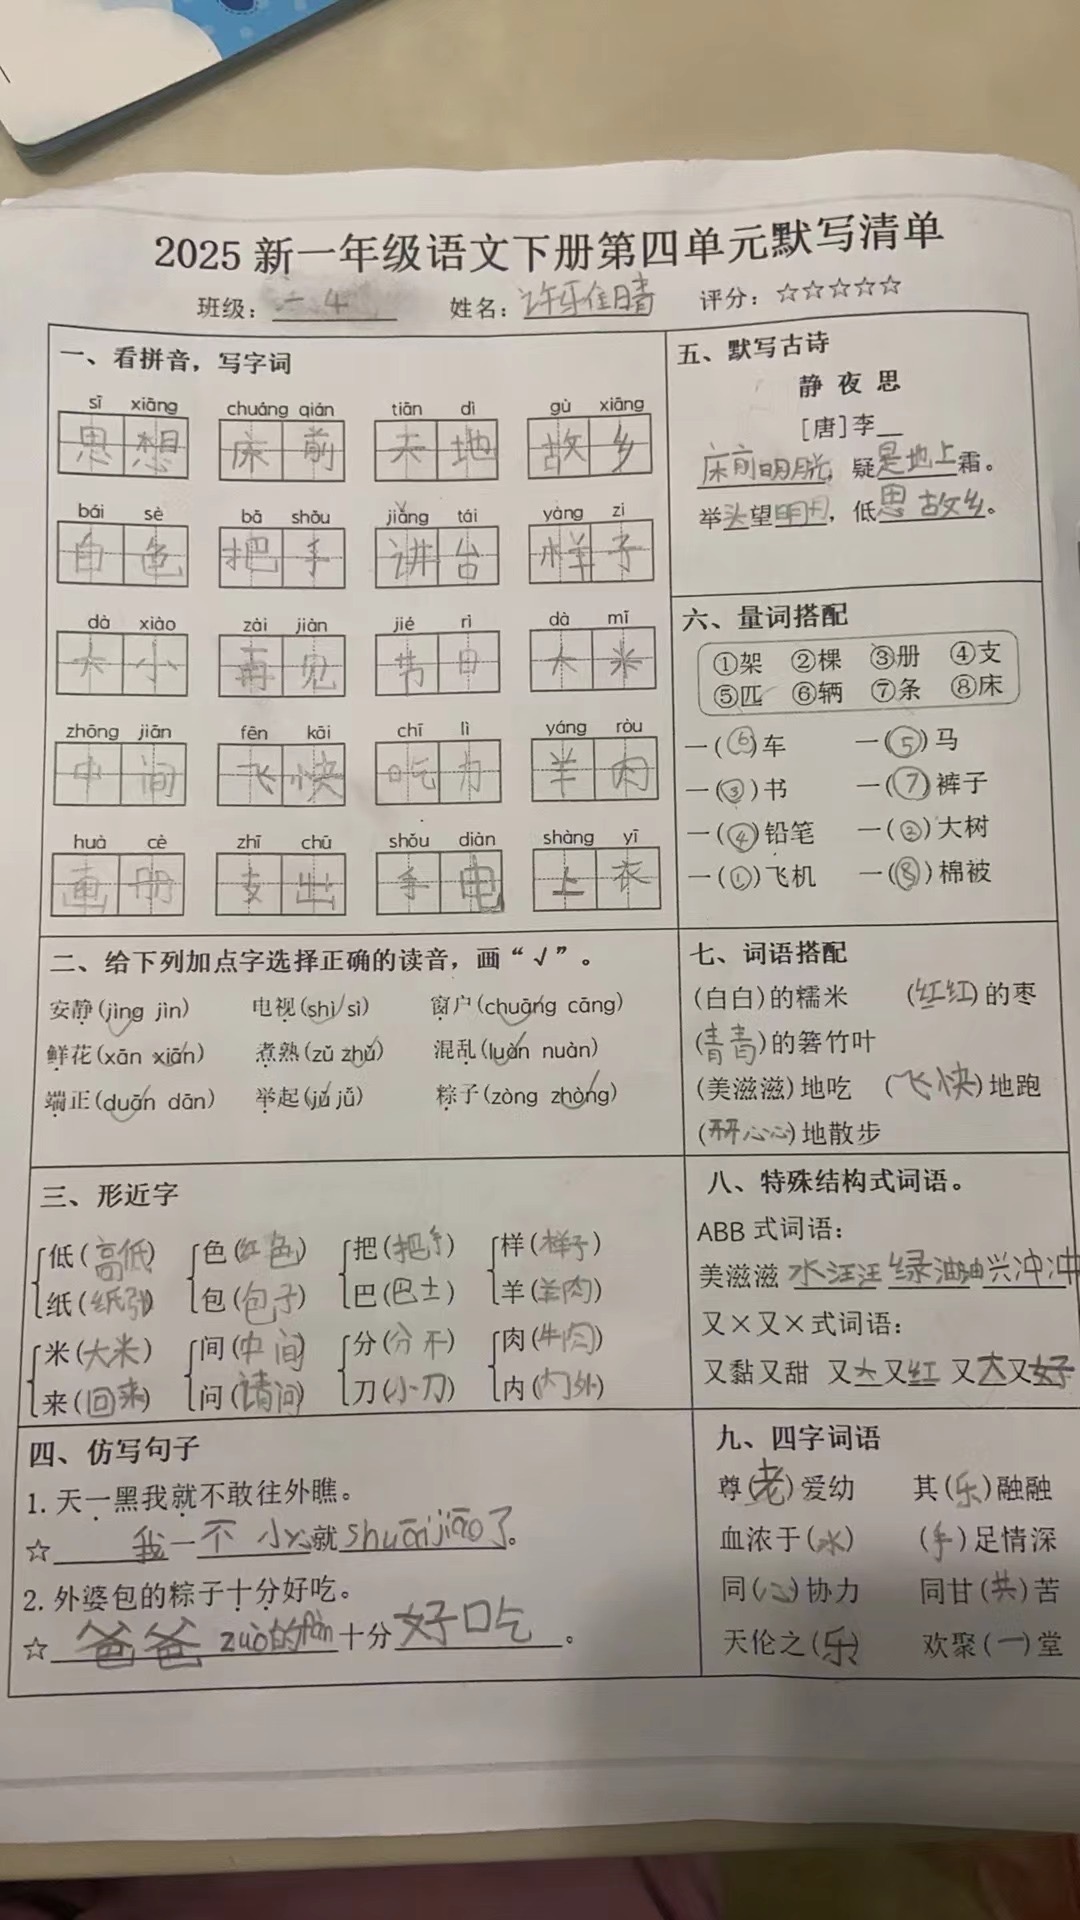 2025新一年级语文下册第四单元默写清单
班级：二4 姓名： 评分：☆☆☆☆☆
一、看拼音，写字词
sī xiāng chuáng qián tiān dì gù xiāng
思想 床前 天地 故乡
bái sè bǎ shǒu jiǎng tái yàng zi
白色 把手 讲台 样子
dà xiǎo zài jiàn jié rì dà mǐ
大小 再见 节日 大米
zhōng jiān fēn kāi chī lì yáng ròu
中间 飞快 吃力 羊肉
huà cè zhī chū shǒu diàn shàng yī
画册 支出 手电 上衣
二、给下列加点字选择正确的读音，画“√”。
安静(jìng jìn) 电视(shì sì) 窗户(chuāng cāng)
鲜花(xān xiān) 煮熟(zǔ zhǔ) 混乱(luàn nuàn)
端正(duān dān) 举起(jǔ jǚ) 粽子(zòng zhòng)
三、形近字
低(高低) 色(红色) 把(把手) 样(样子)
纸(纸张) 包(包子) 巴(巴士) 羊(羊肉)
米(大米) 间(中间) 分(分开) 肉(牛肉)
来(回来) 问(请问) 刀(小刀) 内(内外)
四、仿写句子
1. 天一黑我就不敢往外瞧。
☆我一不小心就shuāijiāo了。
2. 外婆包的粽子十分好吃。
☆爸爸zuò的fàn十分好吃。
五、默写古诗
静夜思
[唐]李
床前明，疑是地上霜。
举头望明月，低思故乡。
六、量词搭配
①架 ②棵 ③册 ④支
⑤匹 ⑥辆 ⑦条 ⑧床
一(⑥)车 一(⑤)马
一(③)书 一(⑦)裤子
一(④)铅笔 一(②)大树
一(①)飞机 一(⑧)棉被
七、词语搭配
(白白)的糯米 (红红)的枣
(青青)的箬竹叶
(美滋滋)地吃 (飞快)地跑
(开心心)地散步
八、特殊结构式词语。
ABB式词语：
美滋滋 水汪汪 绿油油 兴冲冲
又×又×式词语：
又黏又甜 又大又红 又大又好
九、四字词语
尊(老)爱幼 其(乐)融融
血浓于(水) (手)足情深
同(心)协力 同甘(共)苦
天伦之(乐) 欢聚(一)堂